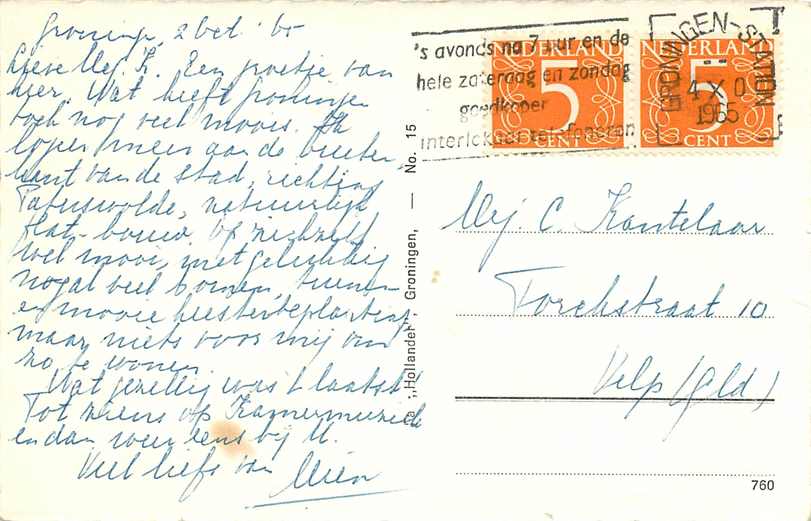 Groningen, 2 oct. '60
Lieve Mej. K. Een groetje van
hier. Wat heeft Groningen
toch nog veel moois. Ik
logeer meer aan de buiten
kant van de stad, richting
Paterswolde, natuurlijk
flat-bouw. Op zichzelf
wel mooi, met gelukkig
nogal veel bomen, tuinen
en mooie heesterbeplanting
maar niets voor mij om
zo te wonen.
Wat gezellig was 't laatst!
Tot ziens op Kamermuziek
en dan weer eens bij U.
Veel liefs van Mien
„Hollander" Groningen, — No. 15
's avonds na 7 uur en de
hele zaterdag en zondag
goedkoper
interlokaal telefoneren
NEDERLAND
5
CENT
NEDERLAND
5
CENT
GRONINGEN-STATION
4 X 0
1965
Mej. C. Kantelaar
Torckstraat 10
Velp (Gld)
760